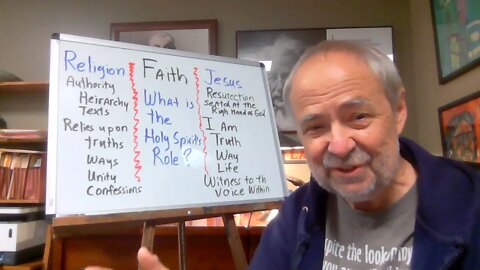 Religion
Authority
Heirarchy
Texts
Relies upon
truths
Ways
Unity
Confessions
Faith
What is
the
Holy Spirits
Role?
Jesus
Resurection
seated at the
Right Hand of God
I Am
Truth
Way
Life
Witness to th
Voice Within
pite the look on my
you are